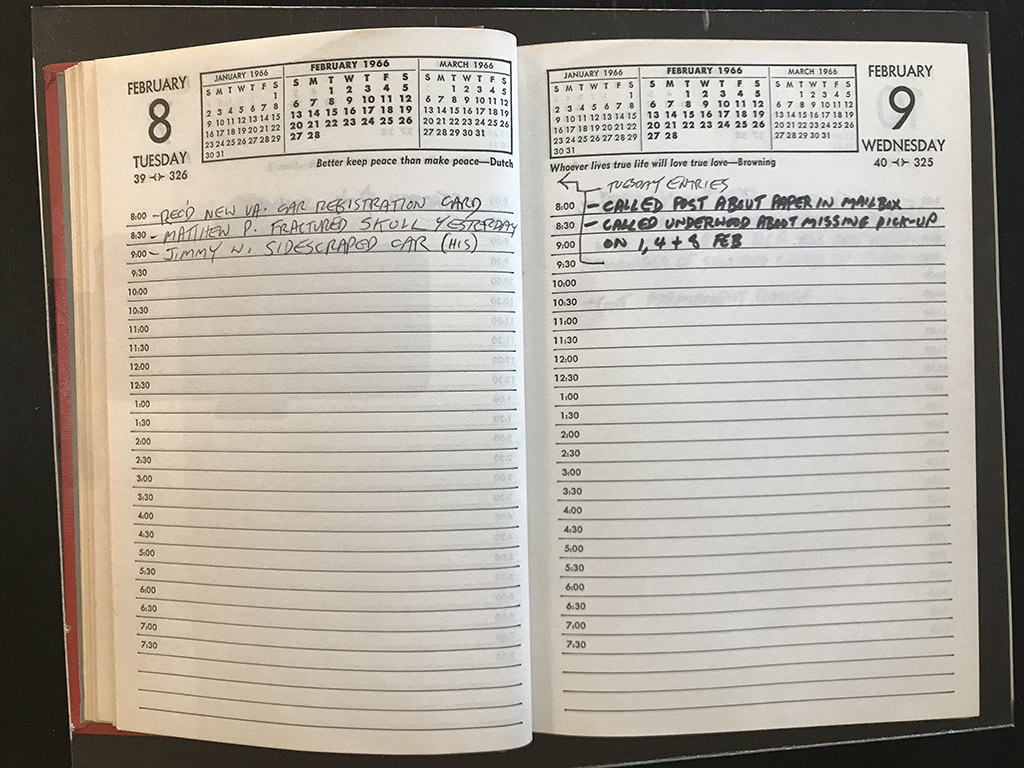 FEBRUARY
8
TUESDAY
39 -‹›- 326
JANUARY 1966
S M T W T F S
1
2 3 4 5 6 7 8
9 10 11 12 13 14 15
16 17 18 19 20 21 22
23 24 25 26 27 28 29
30 31
FEBRUARY 1966
S M T W T F S
1 2 3 4 5
6 7 8 9 10 11 12
13 14 15 16 17 18 19
20 21 22 23 24 25 26
27 28
MARCH 1966
S M T W T F S
1 2 3 4 5
6 7 8 9 10 11 12
13 14 15 16 17 18 19
20 21 22 23 24 25 26
27 28 29 30 31
Better keep peace than make peace—Dutch
8:00 - REC'D NEW VA. CAR REGISTRATION CARD
8:30 - MATTHEW P. FRACTURED SKULL YESTERDAY
9:00 - JIMMY W. SIDESCRAPED CAR (HIS)
9:30
10:00
10:30
11:00
11:30
12:00
12:30
1:00
1:30
2:00
2:30
3:00
3:30
4:00
4:30
5:00
5:30
6:00
6:30
7:00
7:30
JANUARY 1966
S M T W T F S
1
2 3 4 5 6 7 8
9 10 11 12 13 14 15
16 17 18 19 20 21 22
23 24 25 26 27 28 29
30 31
FEBRUARY 1966
S M T W T F S
1 2 3 4 5
6 7 8 9 10 11 12
13 14 15 16 17 18 19
20 21 22 23 24 25 26
27 28
MARCH 1966
S M T W T F S
1 2 3 4 5
6 7 8 9 10 11 12
13 14 15 16 17 18 19
20 21 22 23 24 25 26
27 28 29 30 31
FEBRUARY
9
WEDNESDAY
40 -‹›- 325
Whoever lives true life will love true love—Browning
- TUESDAY ENTRIES
8:00 - CALLED POST ABOUT PAPER IN MAILBOX
8:30 - CALLED UNDERWOOD ABOUT MISSING PICK-UP
9:00 ON 1, 4 + 8 FEB
9:30
10:00
10:30
11:00
11:30
12:00
12:30
1:00
1:30
2:00
2:30
3:00
3:30
4:00
4:30
5:00
5:30
6:00
6:30
7:00
7:30